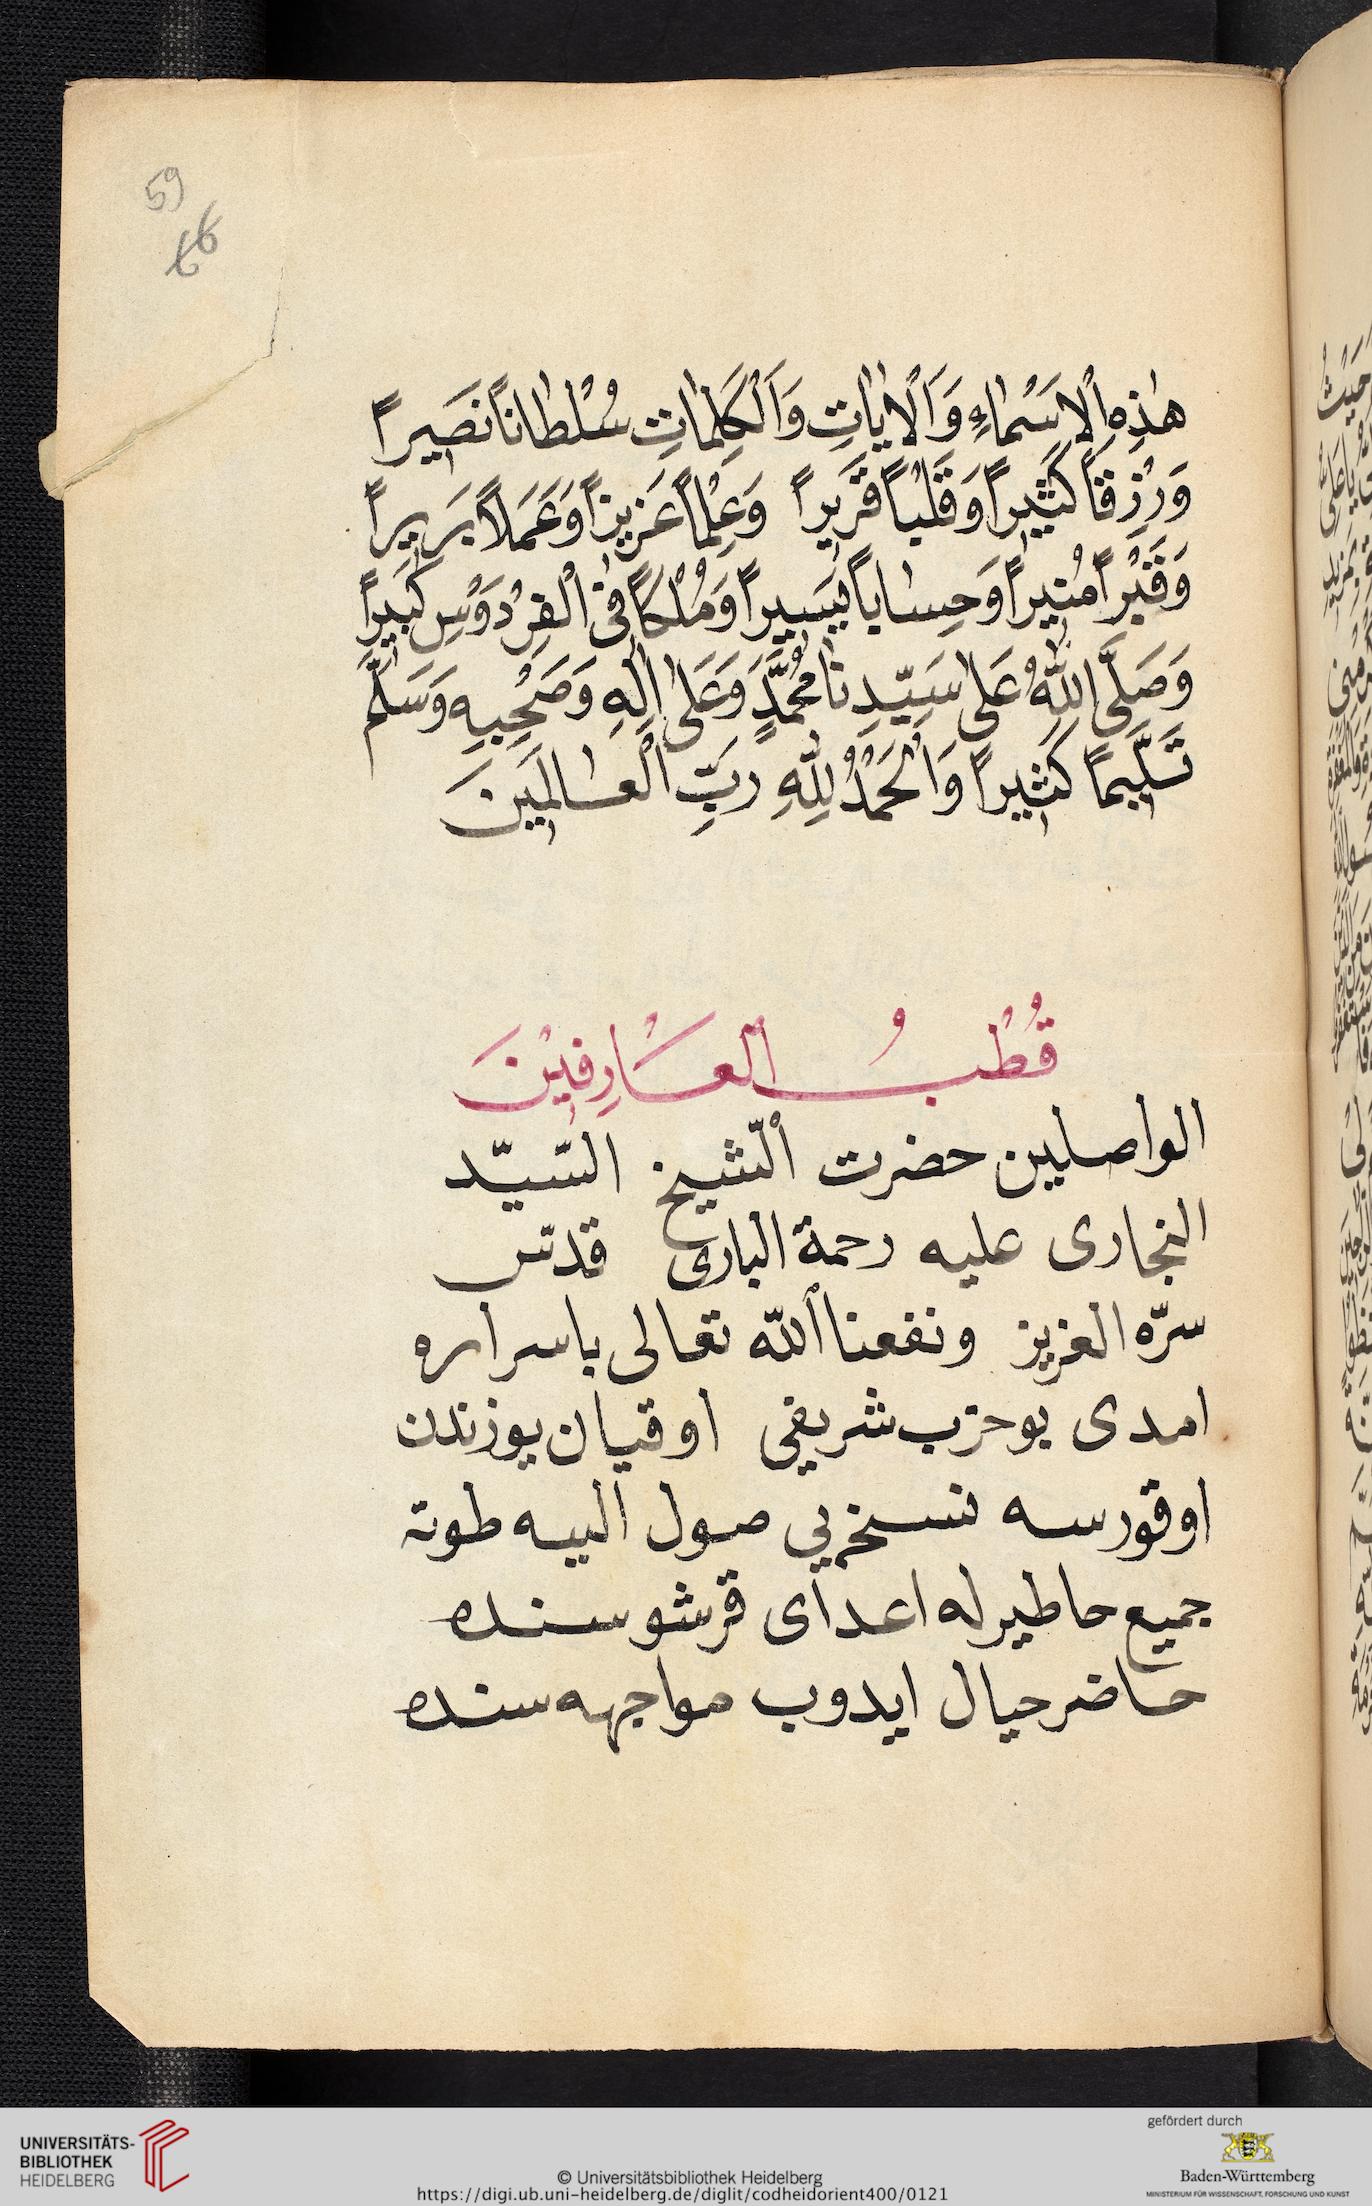 59
66
هٰذِهِ الْاَسْمٰاءِ وَالْاٰيٰاتِ وَالْكَلِمٰاتِ سُلْطٰاناً نَصٖيراً
وَرِزْقاً كَثٖيراً وَقَلْباً قَرٖيراً وَعِلْماً عَزٖيزاً وَعَمَلاً بَرٖيراً
وَقَبْراً مُنٖيراً وَحِسٰاباً يَسٖيراً وَمُلْكاً فِى الْفِرْدَوْسِ كَبٖيراً
وَصَلَّى اللّٰهُ عَلٰى سَيِّدِنٰا مُحَمَّدٍ وَعَلٰى اٰلِهِ وَصَحْبِهِ وَسَلَّمَ
تَسْلٖيماً كَثٖيراً وَالْحَمْدُ لِلّٰهِ رَبِّ الْعٰالَمٖينَ
قُطْبُ الْعَارِفٖيْنَ
الواصلين حضرت الشّيخ السّيّد
البخارى عليه رحمة البارى قدّس
سرّه العزيز ونفعنا اللّه تعالى باسراره
امدى بو حزب شريفى اوقيان يوزندن
اوقورسه نسخه‌يى صول الييه طوته
جميع حاطيرله اعداى قرشوسنده
حاضر حيال ايدوب مواجهه سنده
UNIVERSITÄTS-
BIBLIOTHEK
HEIDELBERG
© Universitätsbibliothek Heidelberg
https://digi.ub.uni-heidelberg.de/diglit/codheidorient400/0121
gefördert durch
Baden-Württemberg
MINISTERIUM FÜR WISSENSCHAFT, FORSCHUNG UND KUNST